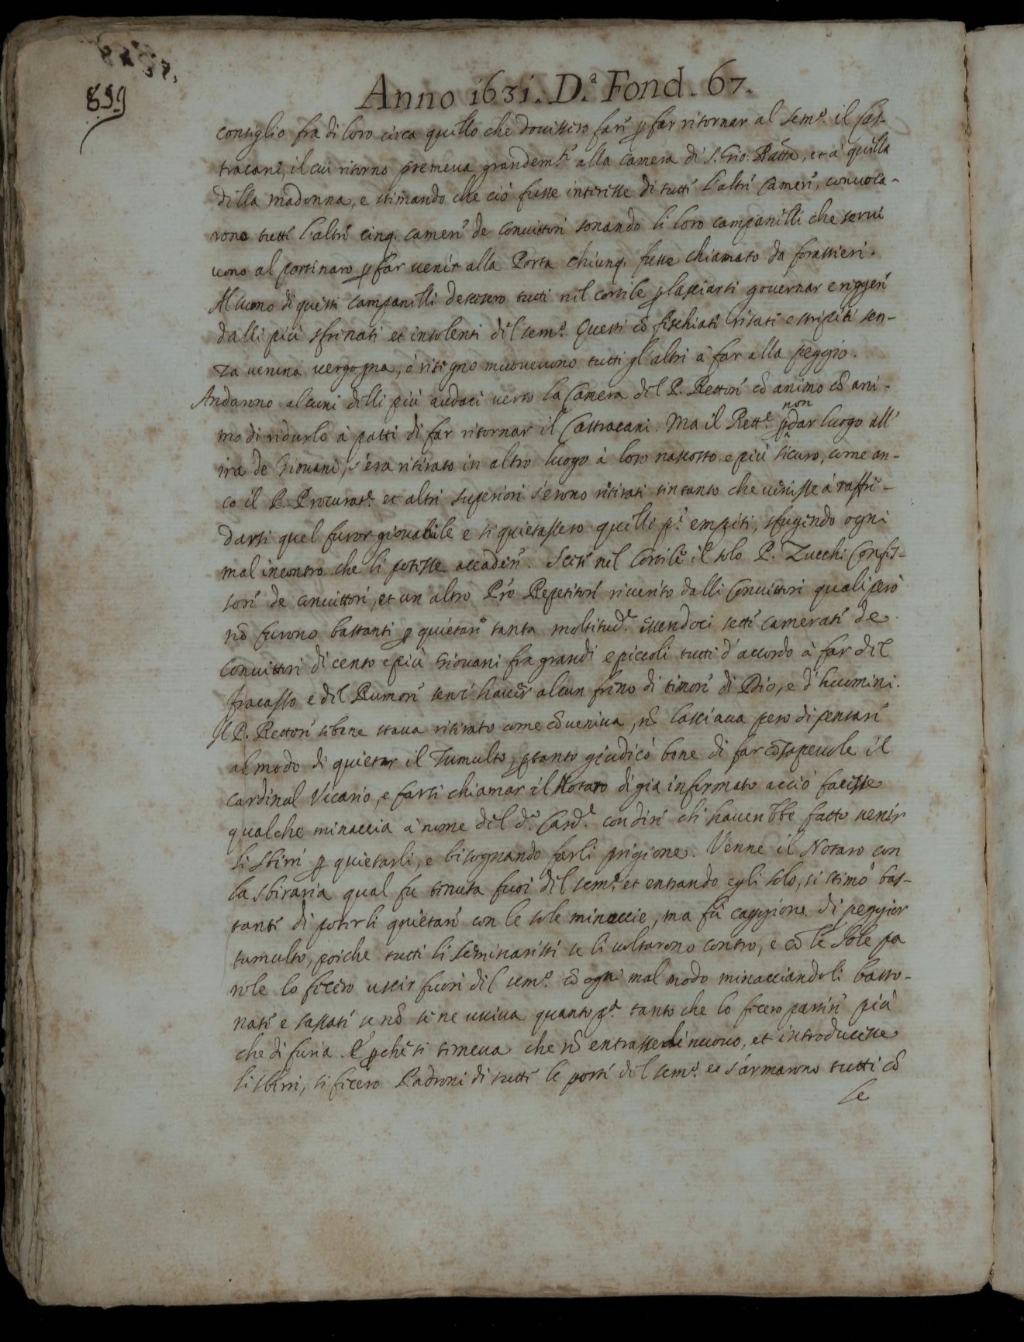 859
Anno 1631. D.ª Fond. 67.
consiglio fra di loro circa quello che dovessero farˢ p far ritornar al Semº. il Cas-
tracani, il cui ritorno premeva grandemᵗᵉ alla Camera di S. Gio. Batta, et a quella
della Madonna, e stimando che ciò fusse interesse di tutte l'altre Camere, convoca-
rono tutte l'altre cinq. camere de Convittori sonando li loro campanelli che servi
vono al portinaro p far venir alla Porta chiunq. fusse chiamato da forastieri.
Al suono di questi Campanelli descesero tutti nel cortile p lasciarsi governar e reggere
dalli più sfrenati et insolenti del semº. Questi cõ fischiati risati e strepiti sen-
za veruna vergogna, ò ritegno movevono tutti gl'altri à far alla peggio.
Andarono alcuni delli più audaci verso la Camera del P. Rettore cõ animo cõ ani-
mo di ridurlo à patti di far ritornar il Castracani. Ma il Rettᵉ p non dar luogo all'
ira de Giovani, s'era ritirato in altro luogo à loro nascosto e più sicuro, come an-
co il P. Procuratᵉ. et altri superiori s'erono ritirati sin tanto che venisse à raffre-
darsi quel furor giovenile e si quietassero quelli pⁱ. empiti, sfugendo ogni
mal incontro che li potesse accadere. Scese nel Cortile il solo P. Zucchi Confes-
sore de convittori, et un altro Pré Repetitore riverito dalli Convittori quali però
nõ furono bastanti p quietare tanta moltitudᵉ. essendoci sette camerate de
Convittori di cento e più Giovani fra grandi e piccoli tutti d'accordo à far del
fracasso e del Rumore senz'haver alcun freno di timore di Dio, e d'huomini.
Il P. Rettore sebene stava ritirato come cõveniva, nõ lasciava pero di pensare
al modo di quietar il Tumulto, p tanto giudicò bene di far cõsapevole il
Cardinal Vicario, e farsi chiamar il Notaro di già informato acciò facesse
qualche minaccia à nome del dº. Cardᵉ. con dire che haverebbe fatto venir
li sbirri p quietarli, e bisognando farli prigione. Venne il Notaro con
la sbiraria qual fu tenuta fuori del semº. et entrando egli solo, si stimò bas-
tante di poterli quietare con le sole minaccie, ma fu caggione di peggior
tumulto, poiche tutti li seminaristi se li voltarono contro, e cõ le sole pa
role lo fecero uscir fuori del semº. cõ ogni mal modo minacciandoli basto-
nate e sassate se nõ se ne usciva quantopᵃ. tanto che lo fecero partire più
che di furia. E pche si temeva che nõ entrasse di nuovo, et introducesse
li sbirri, si fecero Padroni di tutte le porte del semº. et s'armarono tutti cõ
le